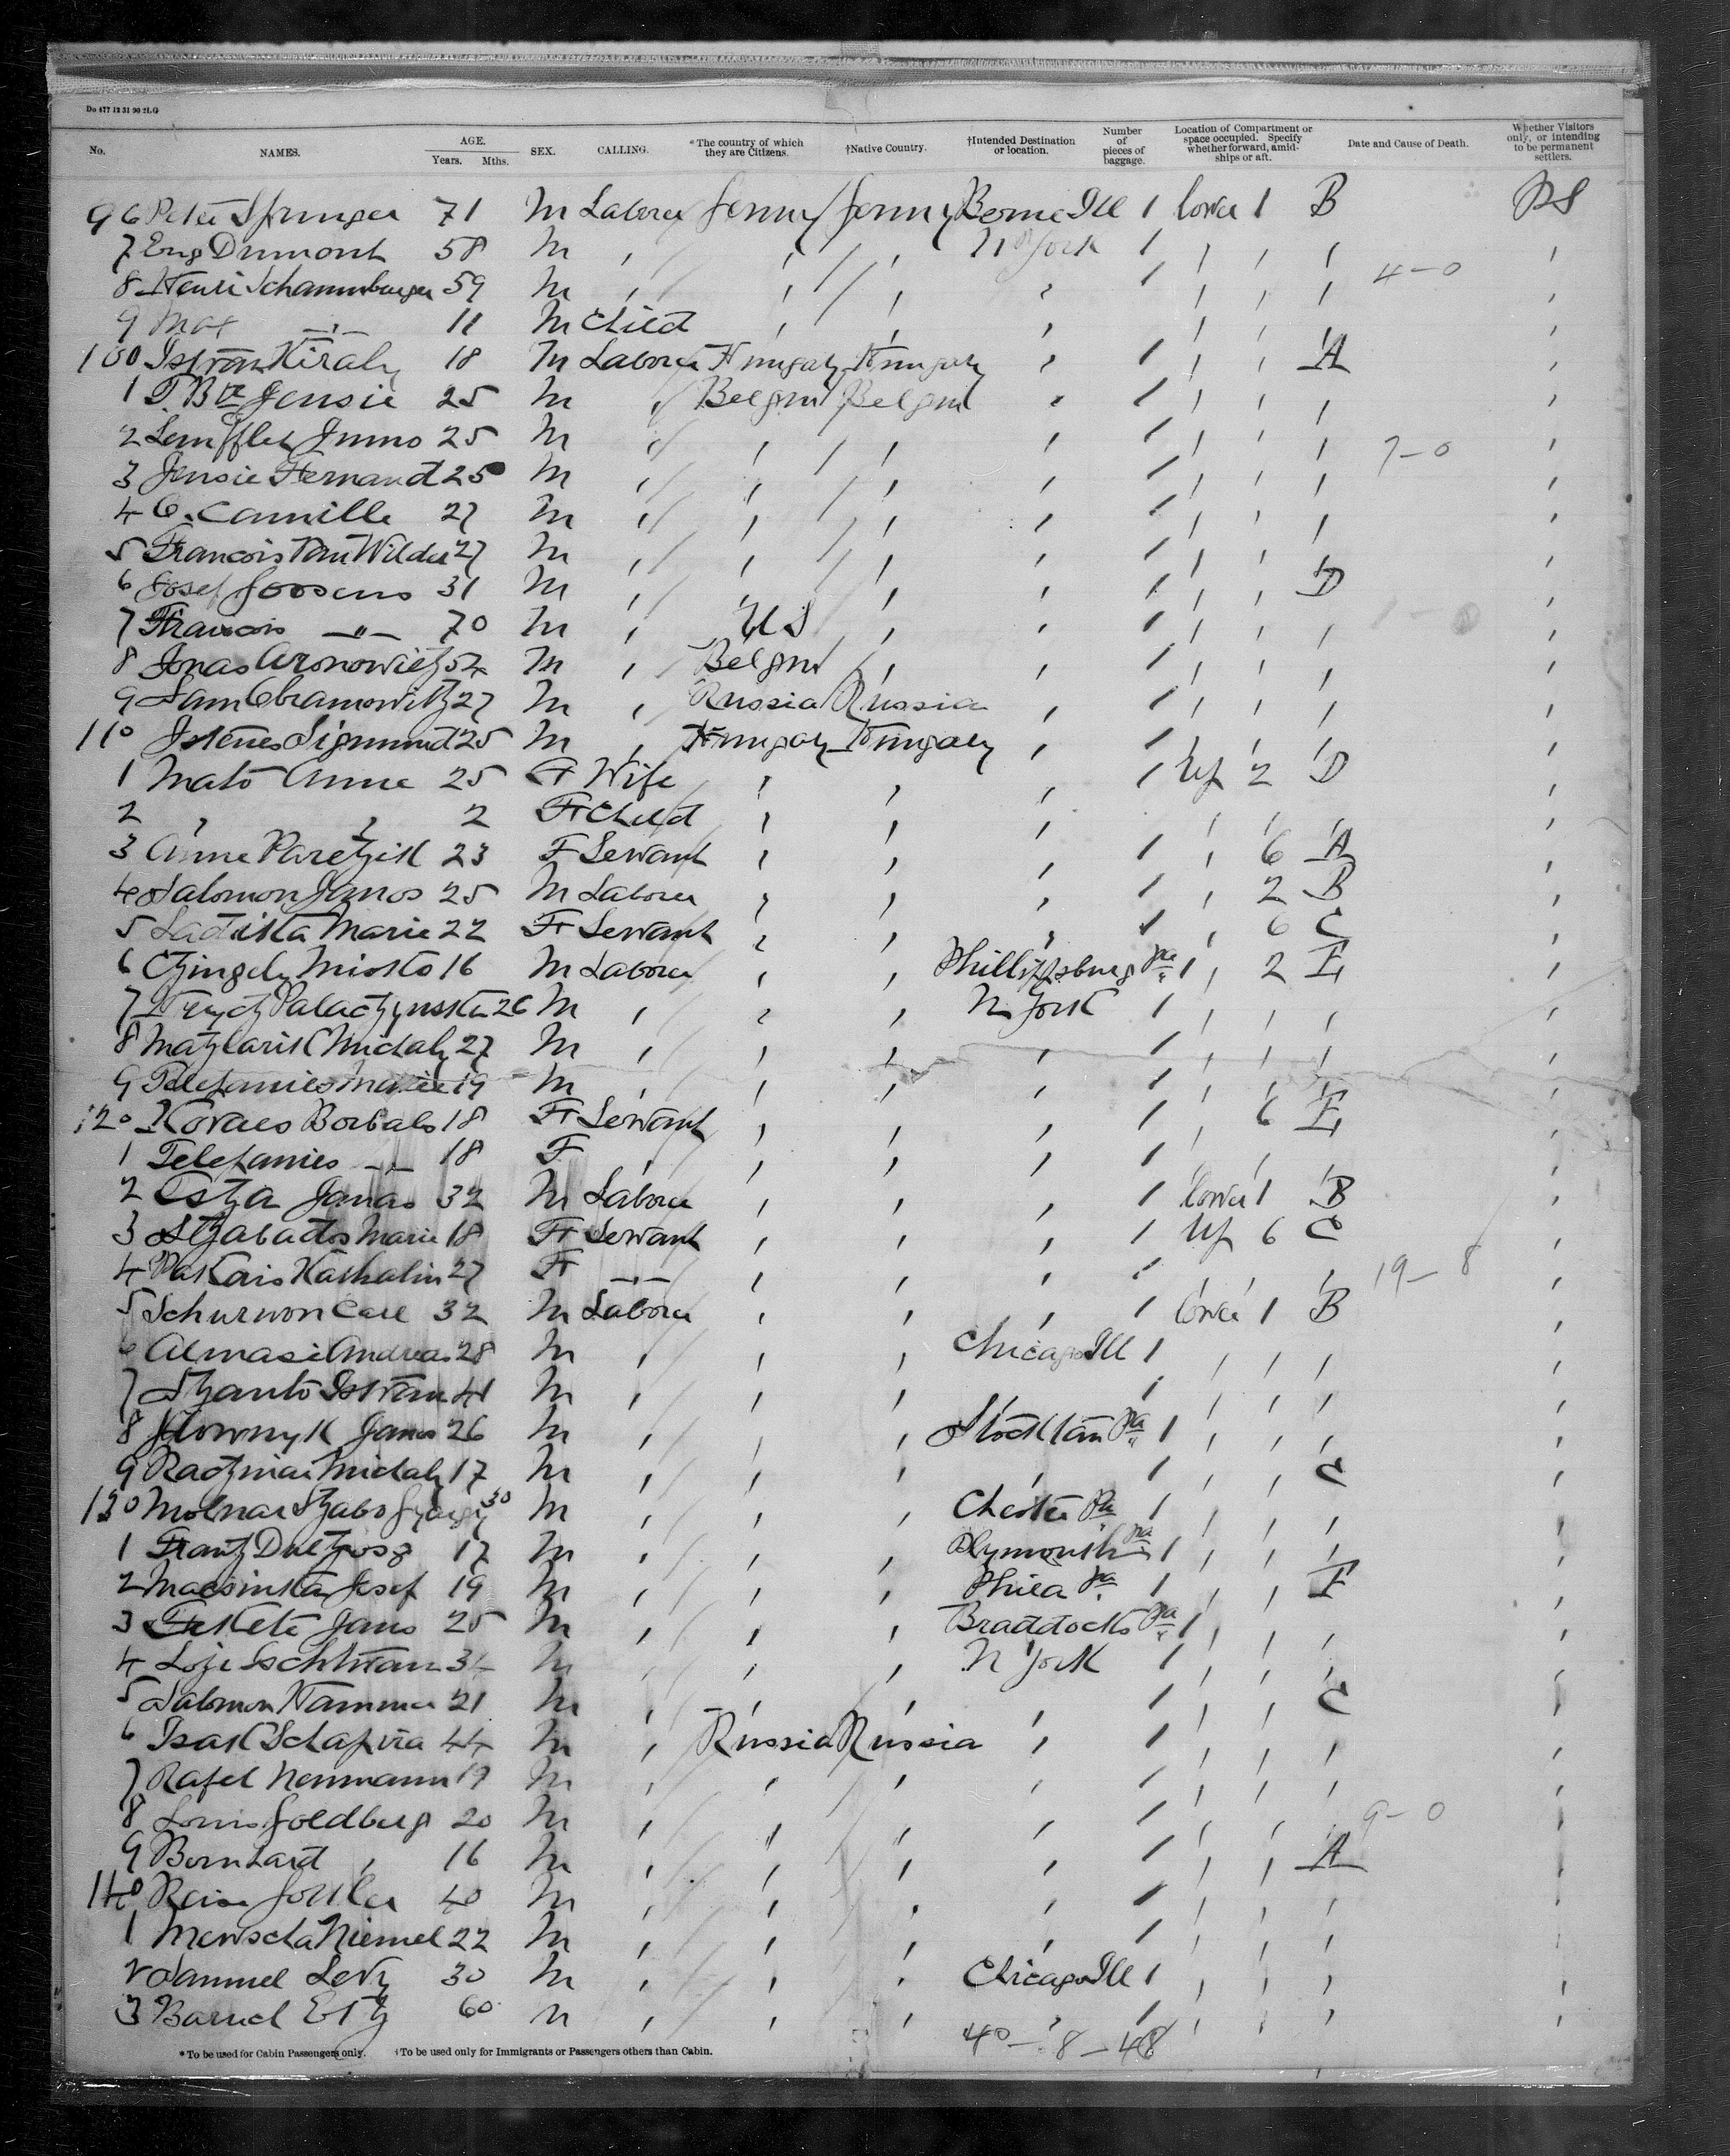 Do 477 12 31 90 2L.G
No. NAMES. AGE. Years. Mths. SEX. CALLING. *The country of which they are Citizens. †Native Country. †Intended Destination or location. Number of pieces of baggage. Location of Compartment or space occupied. Specify whether forward, amidships or aft. Date and Cause of Death. Whether Visitors only, or intending to be permanent settlers.
96 Peter Springer 71 M Laborer Germy Germy Berne Ill 1 lower 1 B PS
7 Eug Dumont 58 M , , , N York 1 , , , ,
8 Henri Schammburger 59 M , , , , 1 , , , 4-0 ,
9 Max -"- 11 M Child , , , , , , ,
100 Istvan Kiraly 18 M Laborer Hungary Hungary , 1 , , A ,
1 25 M , Belgm Belgm , 1 , , , ,
2 25 M , , , , 1 , , , 7-0 ,
3 Jensie Fernand 25 M , , , , 1 , , , ,
4 C. Camille 27 M , , , , 1 , , , ,
5 Francois Van Wilder 27 M , , , , 1 , , , ,
6 Josef Goosens 31 M , , , , 1 , , D ,
7 Francois -"- 70 M , US , , 1 , , , ,
8 Jonas Aronowietz 54 M , Belgm , , 1 , , , ,
9 Sam Abramowitz 27 M , Russia Russia , 1 , , , ,
110 Istenes Sigmund 25 M , Hungary Hungary , 1 , , , ,
1 Mato Anne 25 F Wife , , , 1 Up 2 D ,
2 , , 2 F Child , , , , , , ,
3 Anne Paretzik 23 F Servant , , , 1 , 6 A ,
4 Salomon Janos 25 M Laborer , , , 1 , 2 B ,
5 Ladiska Marie 22 F Servant , , , 1 , 6 C ,
6 Miosko 16 M Laborer , , Phillipsburg Pa 1 , 2 E ,
7 26 M , , , N York 1 , , , ,
8 Matzlarik Mihaly 27 M , , , , 1 , , , ,
9 19 M , , , , 1 , , E ,
120 Kovacs Borbala 18 F Servant , , , 1 , 6 E ,
1 -"- 18 F , , , , 1 , , , ,
2 Janos 32 M Laborer , , , 1 lower 1 B ,
3 Szabados Marie 18 F Servant , , , 1 Up 6 C ,
4 Kathalin 27 F -"- , , , , , , , 19-8 ,
5 Schurwon Carl 32 M Laborer , , , 1 lower 1 B ,
6 Almasi Andreas 28 M , , , Chicago Ill 1 , , , ,
7 Szanto Istvan 41 M , , , , 1 , , , ,
8 Janos 26 M , , , Stockton Pa 1 , , , ,
9 Mihaly 17 M , , , , 1 , , C ,
130 Molnar Szabo Gyorgy 30 M , , , Chester Pa 1 , , , ,
1 Frantz 17 M , , , Plymouth Pa 1 , , , ,
2 Macsinka Josef 19 M , , , Phila Pa 1 , , F ,
3 Fekete Janos 25 M , , , Braddocks Pa 1 , , , ,
4 M , , , N York 1 , , , ,
5 Salomon Hammer 21 M , , , , 1 , , C ,
6 Isak Schapira 44 M , Russia Russia , 1 , , , ,
7 Rafel Neumann 19 M , , , , 1 , , , ,
8 Louis Goldberg 20 M , , , , 1 , , , 9-0 ,
9 Bernhard , 16 M , , , , 1 , , A ,
140 40 M , , , , 1 , , , ,
1 Niemel 22 M , , , , 1 , , , ,
2 Sammel Levy 30 M , , , Chicago Ill 1 , , , ,
3 Baruch 60 M , , , , 1 , , , ,
40-8-48
*To be used for Cabin Passengers only. †To be used only for Immigrants or Passengers others than Cabin.